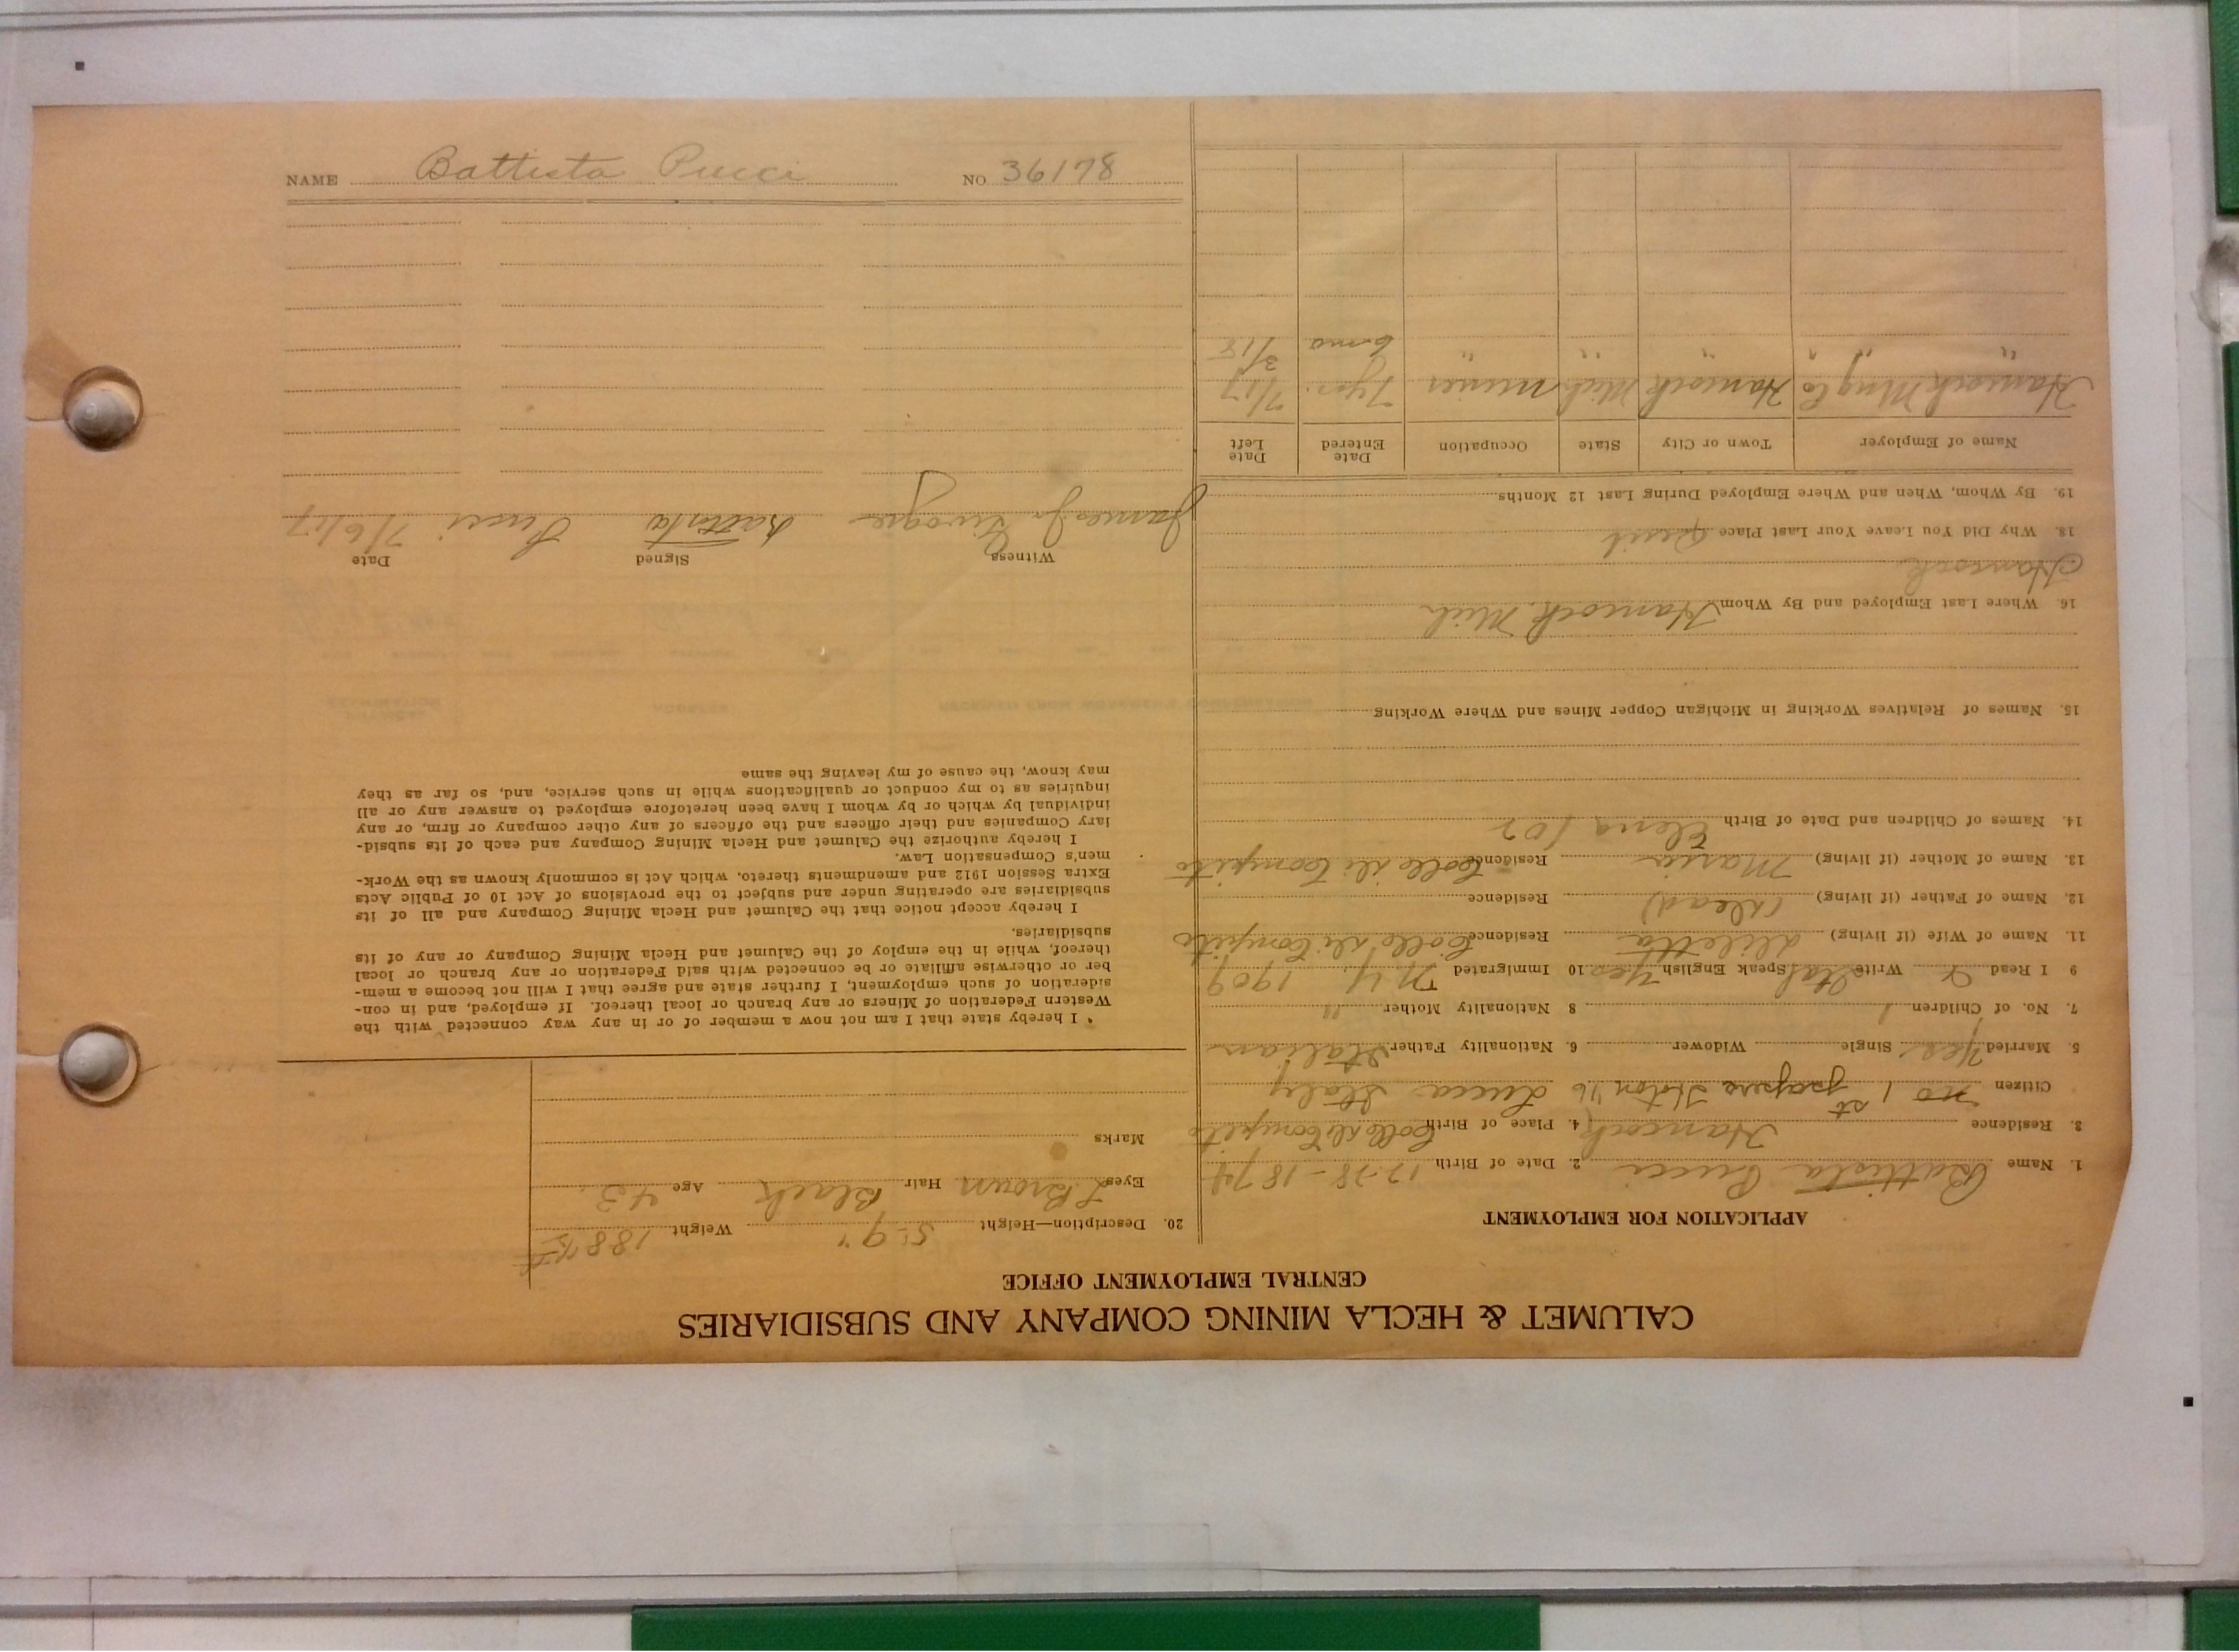 CALUMET & HECLA MINING COMPANY AND SUBSIDIARIES
CENTRAL EMPLOYMENT OFFICE
APPLICATION FOR EMPLOYMENT
1. Name Battista Pucci 2. Date of Birth 12-28-1874
3. Residence Hancock 4. Place of Birth Colle di Compito
Citizen no 1st papers Hoton 16 Lucca Italy
5. Married Yes Single Widower 6. Nationality Father Italian
7. No. of Children 1 8 Nationality Mother "
9 I Read & Write Ital Speak English Yes 10 Immigrated N.Y. 1909
11. Name of Wife (if living) Diletta Residence Colle di Compito
12. Name of Father (if living) (dead) Residence
13. Name of Mother (if living) Maria Residence Colle di Compito
14. Names of Children and Date of Birth Elena
15. Names of Relatives Working in Michigan Copper Mines and Where Working
16. Where Last Employed and By Whom Hancock, Mich
Hancock
18. Why Did You Leave Your Last Place Quit
19. By Whom, When and Where Employed During Last 12 Months
Name of Employer Town or City State Occupation Date Entered Date Left
Hancock Mng Co Hancock Mich miner 7 yrs. 7/17
" " " " " " 6 mo 3/18
20. Description—Height 5-9" Weight 188
Eyes Brown Hair Black Age 43
Marks
I hereby state that I am not now a member of or in any way connected with the
Western Federation of Miners or any branch or local thereof. If employed, and in con-
sideration of such employment, I further state and agree that I will not become a mem-
ber or otherwise affiliate or be connected with said Federation or any branch or local
thereof, while in the employ of the Calumet and Hecla Mining Company or any of its
subsidiaries.
I hereby accept notice that the Calumet and Hecla Mining Company and all of its
subsidiaries are operating under and subject to the provisions of Act 10 of Public Acts
Extra Session 1912 and amendments thereto, which Act is commonly known as the Work-
men's Compensation Law.
I hereby authorize the Calumet and Hecla Mining Company and each of its subsid-
iary Companies and their officers and the officers of any other company or firm, or any
individual by which or by whom I have been heretofore employed to answer any or all
inquiries as to my conduct or qualifications while in such service, and, so far as they
may know, the cause of my leaving the same
Witness Signed Date
James Battista Pucci 7/6/17
NAME Battista Pucci NO 36178